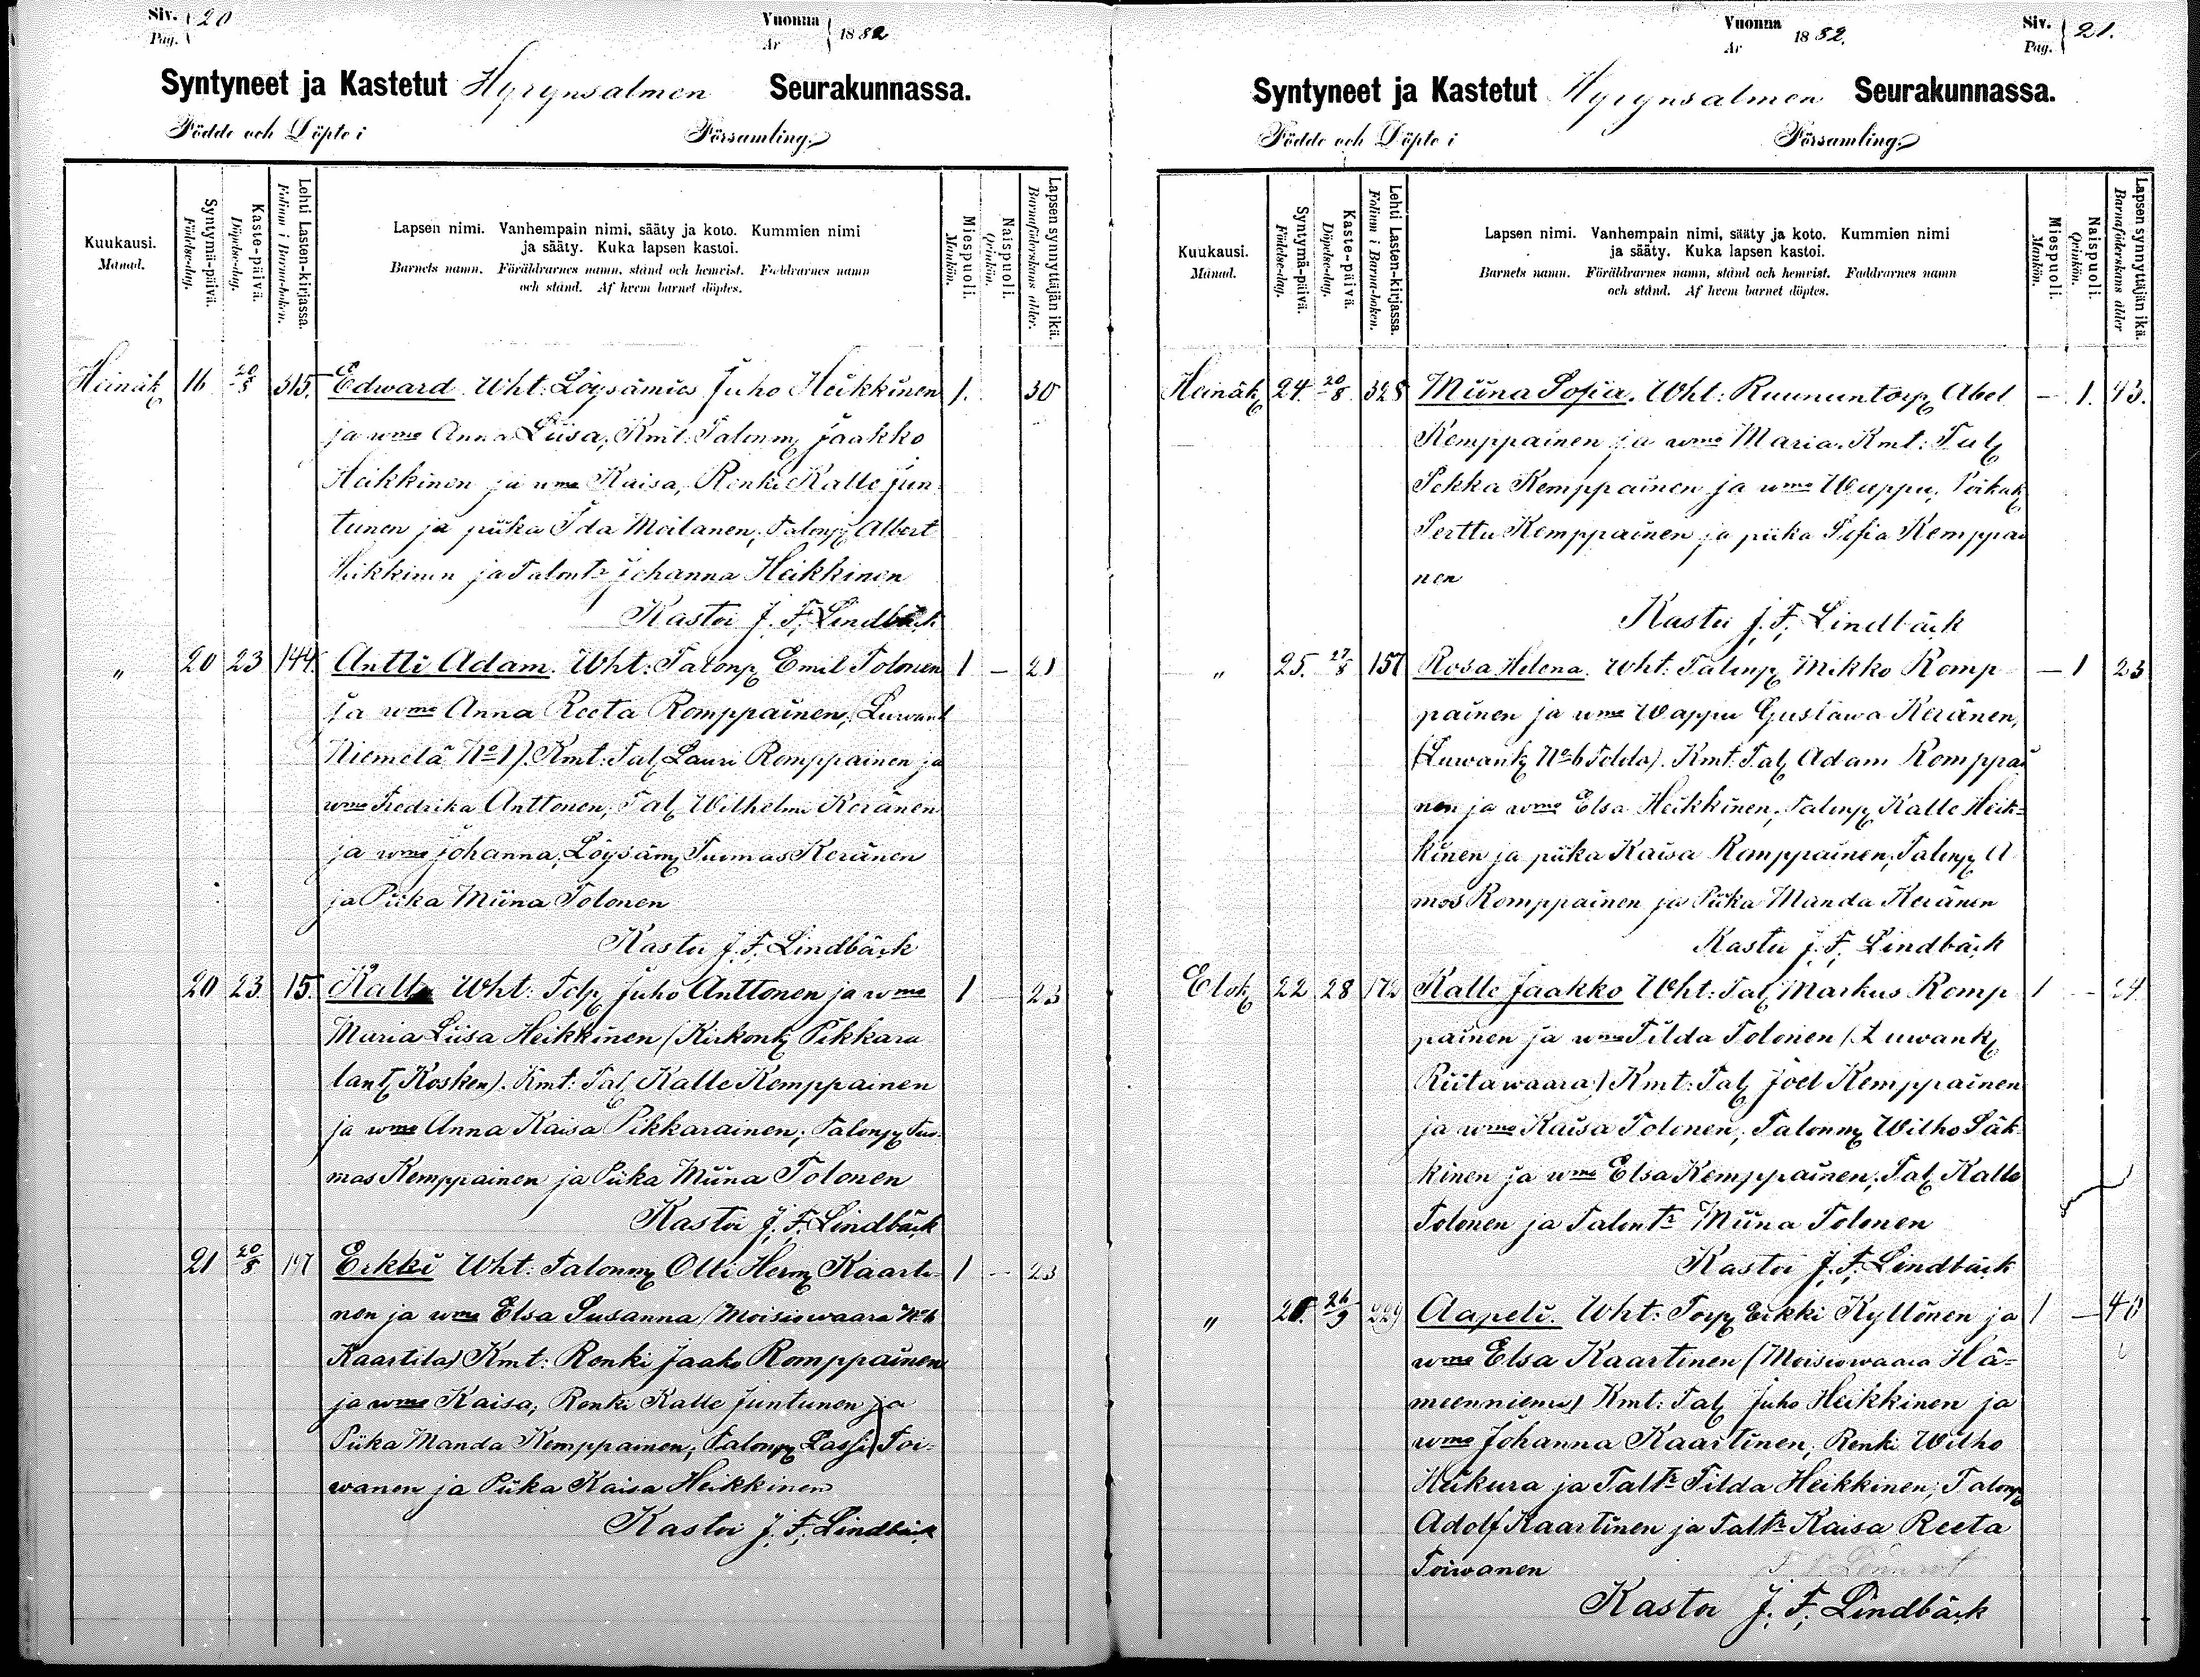 Siv. 20
Pag.
Vuonna 1882
År
Syntyneet ja Kastetut Hyrynsalmen Seurakunnassa.
Födde och Döpte i Församling.
Kuukausi.
Månad.
Syntymä-päivä.
Födelse-dag.
Kaste-päivä.
Döpelse-dag.
Lehti Lasten-kirjassa.
Folium i Barna-boken.
Lapsen nimi. Vanhempain nimi, sääty ja koto. Kummien nimi
ja sääty. Kuka lapsen kastoi.
Barnets namn. Föräldrarnes namn, stånd och hemvist. Faddrarnes namn
och stånd. Af hvem barnet döptes.
Miespuoli.
Mankön.
Naispuoli.
Qvinkön.
Lapsen synnyttäjän ikä.
Barnaföderskans ålder.
Heinäk 16 20/8 315. Edward. Wht: Löysämies Juho Heikkinen 1. 30
ja wmo Anna Liisa, Kmt: Talonm Jaakko
Heikkinen ja wmo Kaisa, Renki Kalle Jun
tunen ja piika Ida Moilanen, Talonp Albert
Heikkinen ja Talontr Johanna Heikkinen
Kastoi J. F. Lindbäck
" 20 23 144. Antti Adam. Wht: Talonp Emil Tolonen 1 — 21
ja wmo Anna Reeta Romppainen, Luwank
Niemelä No 1). Kmt: Tal Lauri Romppainen ja
wmo Fredrika Anttonen, Tal Wilhelm Keränen
ja wmo Johanna, Löysäm Tuomas Keränen
ja Piika Miina Tolonen
Kastoi J. F. Lindbäck
20 23 15. Kalle Wht: Tolp Juho Anttonen ja wmo 1 — 23
Maria Liisa Heikkinen (Kirkonk Pikkara
lant Kosken). Kmt: Tal Kalle Kemppainen
ja wmo Anna Kaisa Pikkarainen, Talonp Tuo
mas Kemppainen ja Piika Miina Tolonen
Kastoi J. F. Lindbäck
21 20/8 Erkki Wht: Talonm Olli Herm Kaarti- 1 — 23
nen ja wmo Elsa Susanna (Moisiowaara No 6
Kaartila) Kmt: Renki Jaako Romppainen
ja wmo Kaisa, Renki Kalle Juntunen ja
Piika Manda Kemppainen, Talonp Lassi Toi-
wanen ja Piika Kaisa Heikkinen
Kastoi J. F. Lindbäck
Vuonna 1882.
År
Siv. 21.
Pag.
Syntyneet ja Kastetut Hyrynsalmen Seurakunnassa.
Födde och Döpte i Församling.
Kuukausi.
Månad.
Syntymä-päivä.
Födelse-dag.
Kaste-päivä.
Döpelse-dag.
Lehti Lasten-kirjassa.
Folium i Barna-boken.
Lapsen nimi. Vanhempain nimi, sääty ja koto. Kummien nimi
ja sääty. Kuka lapsen kastoi.
Barnets namn. Föräldrarnes namn, stånd och hemvist. Faddrarnes namn
och stånd. Af hvem barnet döptes.
Miespuoli.
Mankön.
Naispuoli.
Qvinkön.
Lapsen synnyttäjän ikä.
Barnaföderskans ålder
Heinäk 24 20/8 328 Miina Sofia. Wht: Ruununtorp Abel — 1. 43.
Kemppainen ja wmo Maria. Kmt: Tal
Pekka Kemppainen ja wmo Wappu, Poikak
Perttu Kemppainen ja piika Sofia Kemppai
nen
Kastoi J. F. Lindbäck
" 25. 27/8 157 Rosa Helena. Wht: Talonp Mikko Romp — 1 23
painen ja wmo Wappu Gustawa Keränen,
(Luwank No 6 Tolola). Kmt: Tal Adam Romppai
nen ja wmo Elsa Heikkinen, Talonp Kalle Heik-
kinen ja piika Kaisa Romppainen, Talonp A
mos Romppainen ja Piika Manda Keränen
Kastoi J. F. Lindbäck
Elok 22 28 172 Kalle Jaakko Wht: Tal Markus Romp 1 — 24
painen ja wmo Tilda Tolonen (Luwank
Riitawaara) Kmt: Tal Joel Kemppainen
ja wmo Kaisa Tolonen, Talonm Wilho Säk
kinen ja wmo Elsa Kemppainen, Tal Kalle
Tolonen ja Talontr Miina Tolonen
Kastoi J. F. Lindbäck
" 26/9 229 Aapeli. Wht: Torp Erkki Kyllönen ja 1 — 40
wmo Elsa Kaartinen (Moisiowaara Hä-
meenniemi) Kmt: Tal Juho Heikkinen ja
wmo Johanna Kaartinen, Renki Wilho
Heikura ja Taltr Tilda Heikkinen, Talonp
Adolf Kaartinen ja Taltr Kaisa Reeta
Toiwanen
Kastoi J. F. Lindbäck